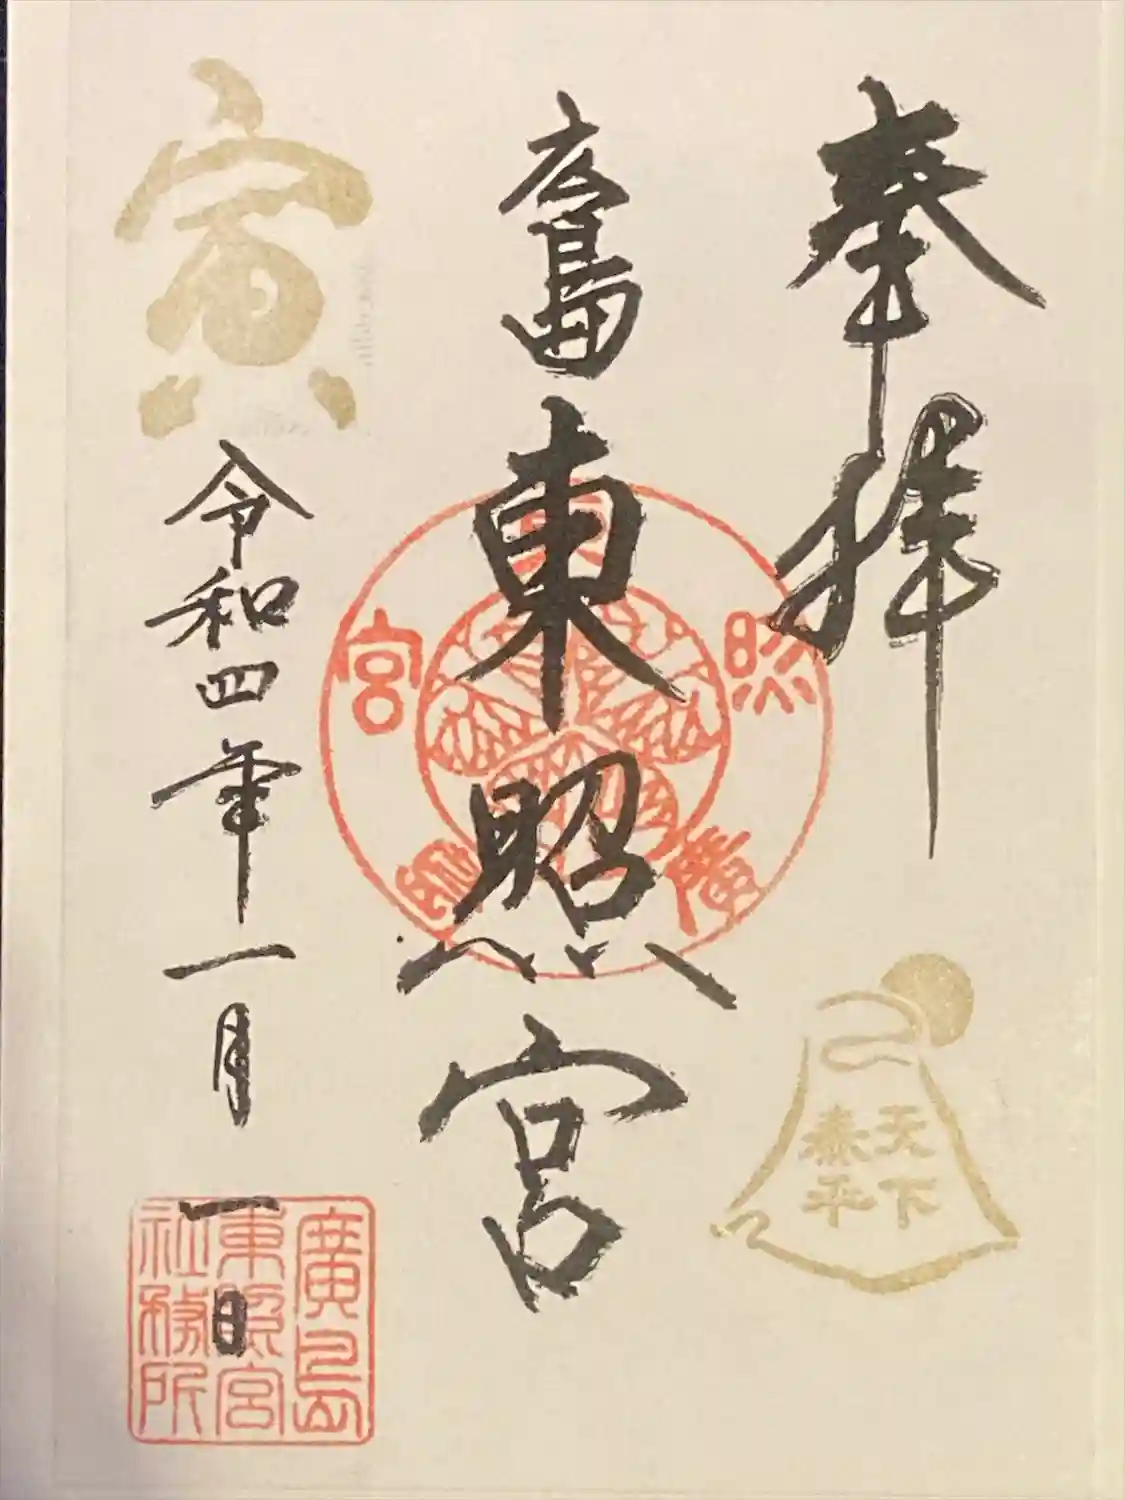 奉拝
天下
泰平
広島
東照宮
東照宮廣島
寅
令和四年一月一日
廣島
東照宮
社務所